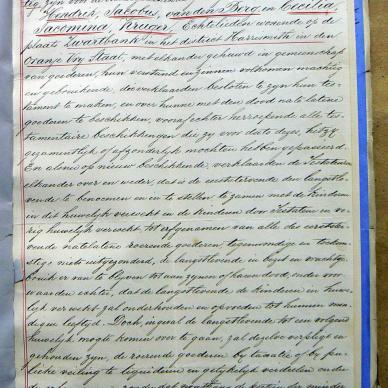 zyn voor de
Hendrik, Jakobus, van den Berg, en Cecilia
Jacomina, Kruger, Echtelieden wonende op de
plaats Zwartbank in het district Harrismith in den
Oranje Vry Staat, met elkander gehuwd in gemeenschap
van goederen, hun verstand en zinnen volkomen machtig
en gebruikende, de verklaarden besloten te zyn hun tes-
tament te maken, en over hunne met den dood na te latene
goederen te beschikken, vooraf echter herroepende alle tes-
tamentaire beschikkingen die zy voor dato dezes, hetzy
gezamentlyk of afzonderlyk mochten hebben gepasseerd.
En alzoo op nieuw beschikkende, verklaarden de Testateuren
elkander over en weder, dat is de eerststervende den langstle-
vende te benoemen en in te stellen te zamen met de Kinderen
in dit huwelyk verwekt en de Kinderen door Testatrice in vo-
rig huwelyk verwekt tot erfgenamen van alle des eerststerv-
ende natelatene roerende goederen, tegenwoordige en toekom-
stige niets uitgezonderd, de langstlevende in bezit en vrucht
bruik er van te blyven tot aan zynen of haren dood, onder voor
waarden echter, dat de langstlevende de Kinderen in huwe-
lyk verwekt zal onderhouden en opvoeden tot hunnen mon-
digen leeftyd. Doch, ingeval de langstlevende tot een volgend
huwelyk mogte komen over te gaan, zal dezelve verpligt en
gehouden zyn, de roerende goederen by taxatie of by pu-
blieke veiling te liquideren en gelykelyk verdeelen onder